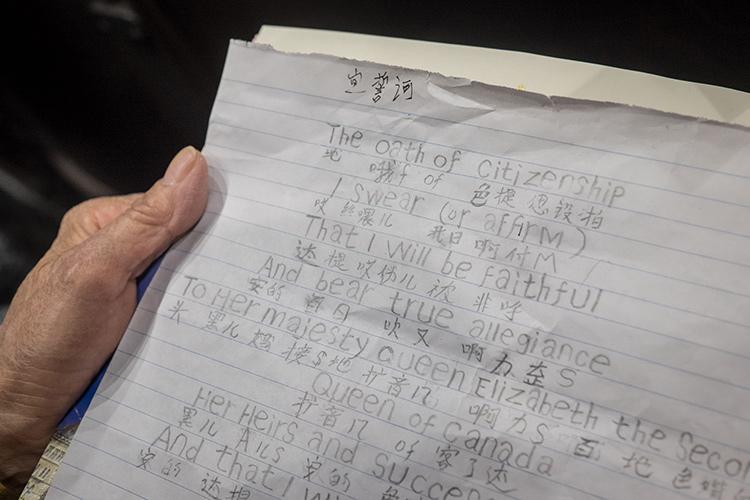 宣誓河
The oath of citizenship
地 哦f of 色提恩设拍
I swear (or affirM)
哎 丝喂儿 我日 啊付M
That I will be faithful
达 提 哎伪儿 被 非
And bear true allegiance
安的 吹又 啊力歪S
To Her majesty queen Elizabeth the Seco
头 黑儿 接S地 扩音 啊力S 百 地 色
Queen of canada
扩音 of 家了达
Her Heirs and Succes
黑儿 ÀiLs 安的 色
And that I wil
安的 达提